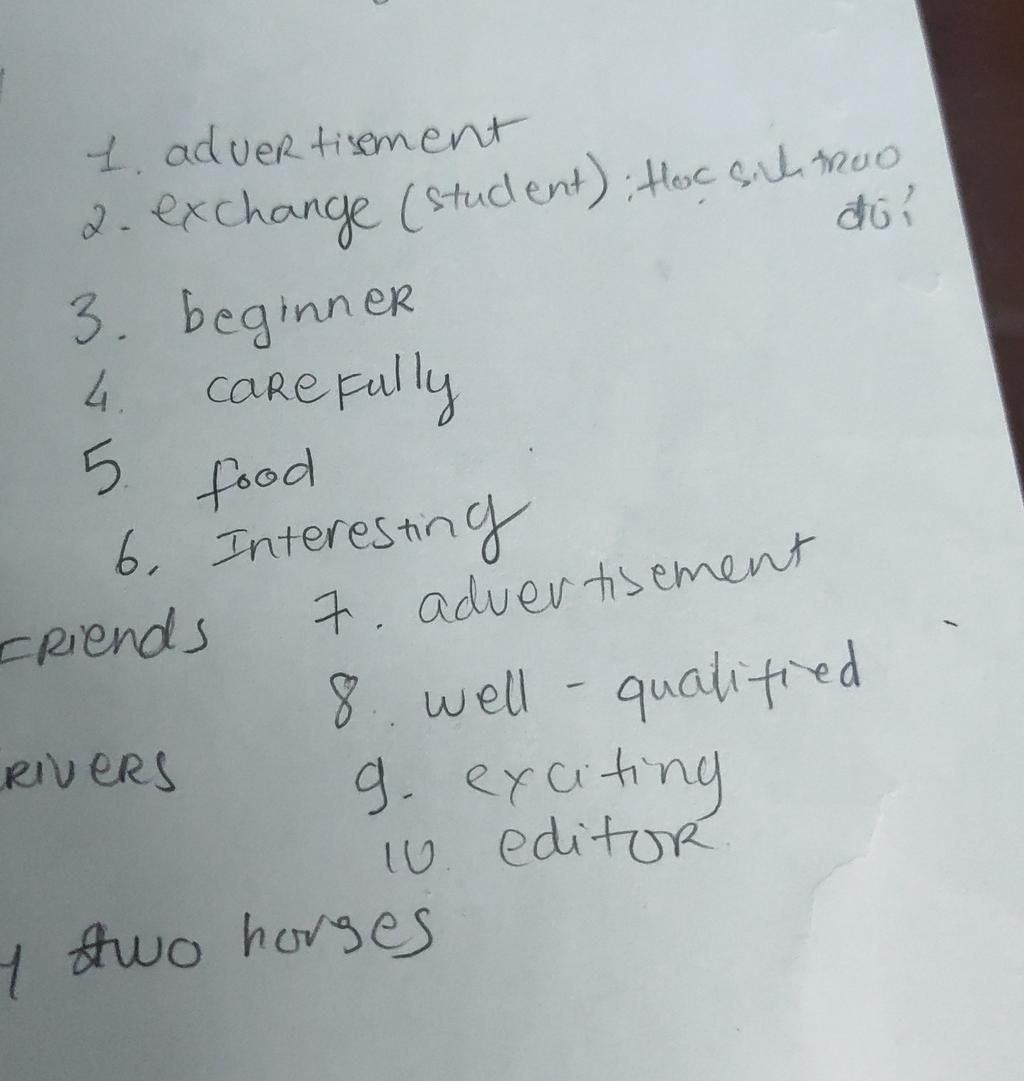 1. advertisement
2. exchange (student) : Học sinh trao
đổi
3. beginner
4. carefully
5. food
6. Interesting
FRiends
7. advertisement
8. well - qualified
RIVERS
9. exciting
10. editor
two horses